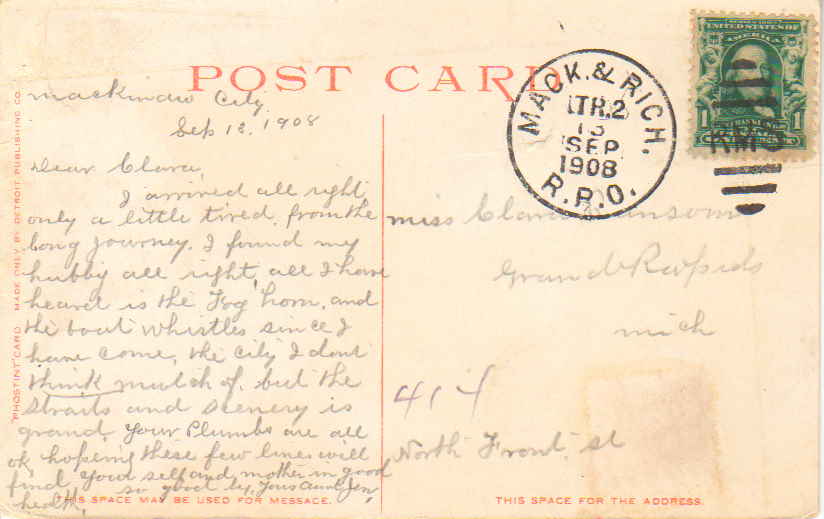 POST CARD
Mackinaw City
Sep 13, 1908
Dear Clara,
I arrived all right
only a little tired from the
long journey. I found my
hubby all right, all I have
heard is the Fog horn, and
the boat whistles since I
have come, the city I dont
think mutch of, but the
straits and scenery is
grand. Your Plumbs are all
ok, hopeing these few lines will
find your self and mother in good
health, so good by, Yours Aunt Jen
THIS SPACE MAY BE USED FOR MESSAGE.
PHOSTINT CARD MADE ONLY BY DETROIT PUBLISHING CO.
MACK. & RICH.
TR.2
13
SEP
1908
R.P.O.
UNITED STATES OF
AMERICA
1 FRANKLIN 1
RMS
miss Clara
Grand Rapids
mich
414
North Front st
THIS SPACE FOR THE ADDRESS.